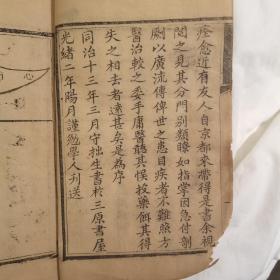 痊愈近有友人自京都來帶得是書余視
閱之見其分門别類瞭如指掌因急付剞
劂以廣流傳俾世之患目疾者不難照方
醫治較之委手庸醫聽其悞投藥餌其得
失之相去者遠甚矣是為序
同治十三年三月守拙生書於三原書屋
光緒二年陽月謹勉學人刋送